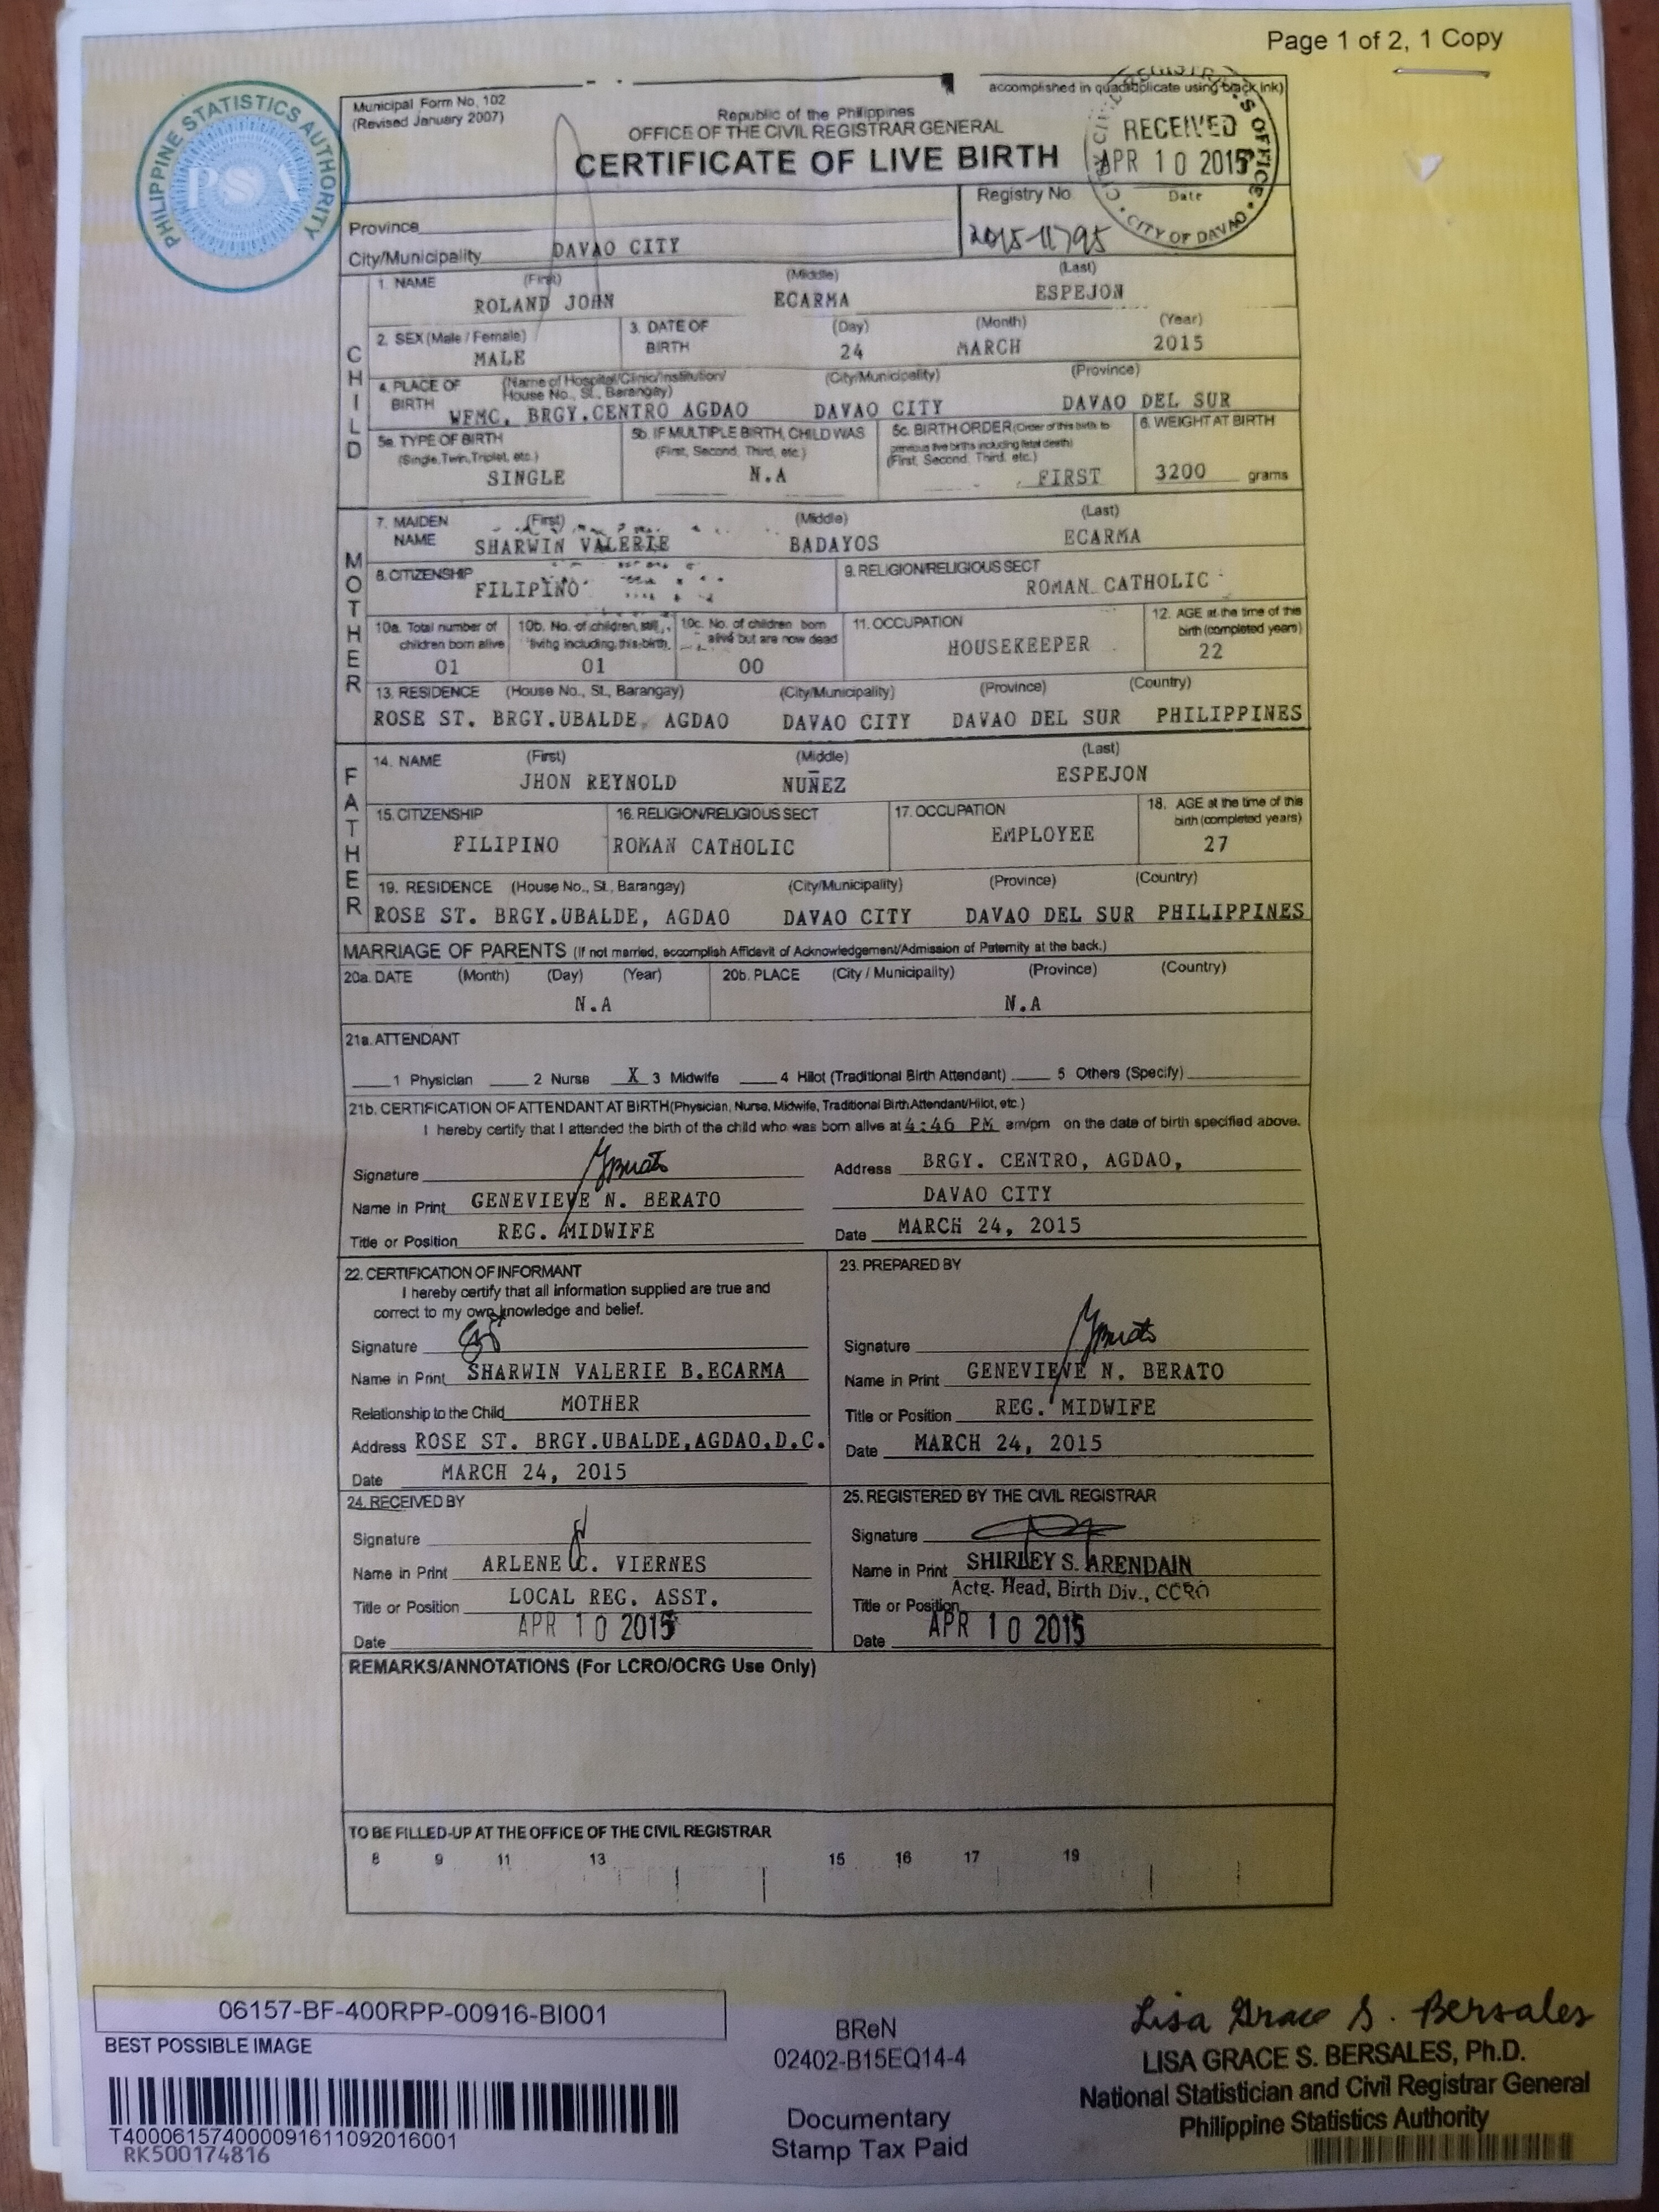 Page 1 of 2, 1 Copy
PHILIPPINE STATISTICS AUTHORITY
PSA
Municipal Form No. 102
(Revised January 2007)
accomplished in quadruplicate using black ink)
Republic of the Philippines
OFFICE OF THE CIVIL REGISTRAR GENERAL
CERTIFICATE OF LIVE BIRTH
RECEIVED
APR 10 2015
Date
CITY OF DAVAO
Registry No.
2015-11795
Province
City/Municipality DAVAO CITY
CHILD
1. NAME (First) (Middle) (Last)
ROLAND JOHN ECARMA ESPEJON
2. SEX (Male / Female) 3. DATE OF BIRTH (Day) (Month) (Year)
MALE 24 MARCH 2015
4. PLACE OF BIRTH (Name of Hospital/Clinic/Institution/ House No., St., Barangay) (City/Municipality) (Province)
WFMC, BRGY.CENTRO AGDAO DAVAO CITY DAVAO DEL SUR
5a. TYPE OF BIRTH (Single, Twin, Triplet, etc.) 5b. IF MULTIPLE BIRTH, CHILD WAS (First, Second, Third, etc.) 5c. BIRTH ORDER (Order of this birth to previous live births including fetal death) (First, Second, Third, etc.) 6. WEIGHT AT BIRTH
SINGLE N.A FIRST 3200 grams
MOTHER
7. MAIDEN NAME (First) (Middle) (Last)
SHARWIN VALERIE BADAYOS ECARMA
8. CITIZENSHIP FILIPINO 9. RELIGION/RELIGIOUS SECT ROMAN CATHOLIC
10a. Total number of children born alive 10b. No. of children still living including this birth 10c. No. of children born alive but are now dead 11. OCCUPATION 12. AGE at the time of this birth (completed years)
01 01 00 HOUSEKEEPER 22
13. RESIDENCE (House No., St., Barangay) (City/Municipality) (Province) (Country)
ROSE ST. BRGY.UBALDE, AGDAO DAVAO CITY DAVAO DEL SUR PHILIPPINES
FATHER
14. NAME (First) (Middle) (Last)
JHON REYNOLD NUÑEZ ESPEJON
15. CITIZENSHIP 16. RELIGION/RELIGIOUS SECT 17. OCCUPATION 18. AGE at the time of this birth (completed years)
FILIPINO ROMAN CATHOLIC EMPLOYEE 27
19. RESIDENCE (House No., St., Barangay) (City/Municipality) (Province) (Country)
ROSE ST. BRGY.UBALDE, AGDAO DAVAO CITY DAVAO DEL SUR PHILIPPINES
MARRIAGE OF PARENTS (If not married, accomplish Affidavit of Acknowledgement/Admission of Paternity at the back.)
20a. DATE (Month) (Day) (Year) 20b. PLACE (City / Municipality) (Province) (Country)
N.A N.A
21a. ATTENDANT
1 Physician 2 Nurse X 3 Midwife 4 Hilot (Traditional Birth Attendant) 5 Others (Specify)
21b. CERTIFICATION OF ATTENDANT AT BIRTH (Physician, Nurse, Midwife, Traditional Birth Attendant/Hilot, etc.)
I hereby certify that I attended the birth of the child who was born alive at 4:46 PM am/pm on the date of birth specified above.
Signature Address BRGY. CENTRO, AGDAO,
Name in Print GENEVIEVE N. BERATO DAVAO CITY
Title or Position REG. MIDWIFE Date MARCH 24, 2015
22. CERTIFICATION OF INFORMANT
I hereby certify that all information supplied are true and
correct to my own knowledge and belief.
Signature
Name in Print SHARWIN VALERIE B.ECARMA
Relationship to the Child MOTHER
Address ROSE ST. BRGY.UBALDE,AGDAO,D.C.
Date MARCH 24, 2015
23. PREPARED BY
Signature
Name in Print GENEVIEVE N. BERATO
Title or Position REG. MIDWIFE
Date MARCH 24, 2015
24. RECEIVED BY
Signature
Name in Print ARLENE C. VIERNES
Title or Position LOCAL REG. ASST.
Date APR 10 2015
25. REGISTERED BY THE CIVIL REGISTRAR
Signature
Name in Print SHIRLEY S. ARENDAIN
Title or Position Actg. Head, Birth Div., CCRO
Date APR 10 2015
REMARKS/ANNOTATIONS (For LCRO/OCRG Use Only)
TO BE FILLED-UP AT THE OFFICE OF THE CIVIL REGISTRAR
8 9 11 13 15 16 17 19
06157-BF-400RPP-00916-BI001
BEST POSSIBLE IMAGE
T400061574000091611092016001
RK500174816
BReN
02402-B15EQ14-4
Documentary
Stamp Tax Paid
Lisa Grace S. Bersales
LISA GRACE S. BERSALES, Ph.D.
National Statistician and Civil Registrar General
Philippine Statistics Authority